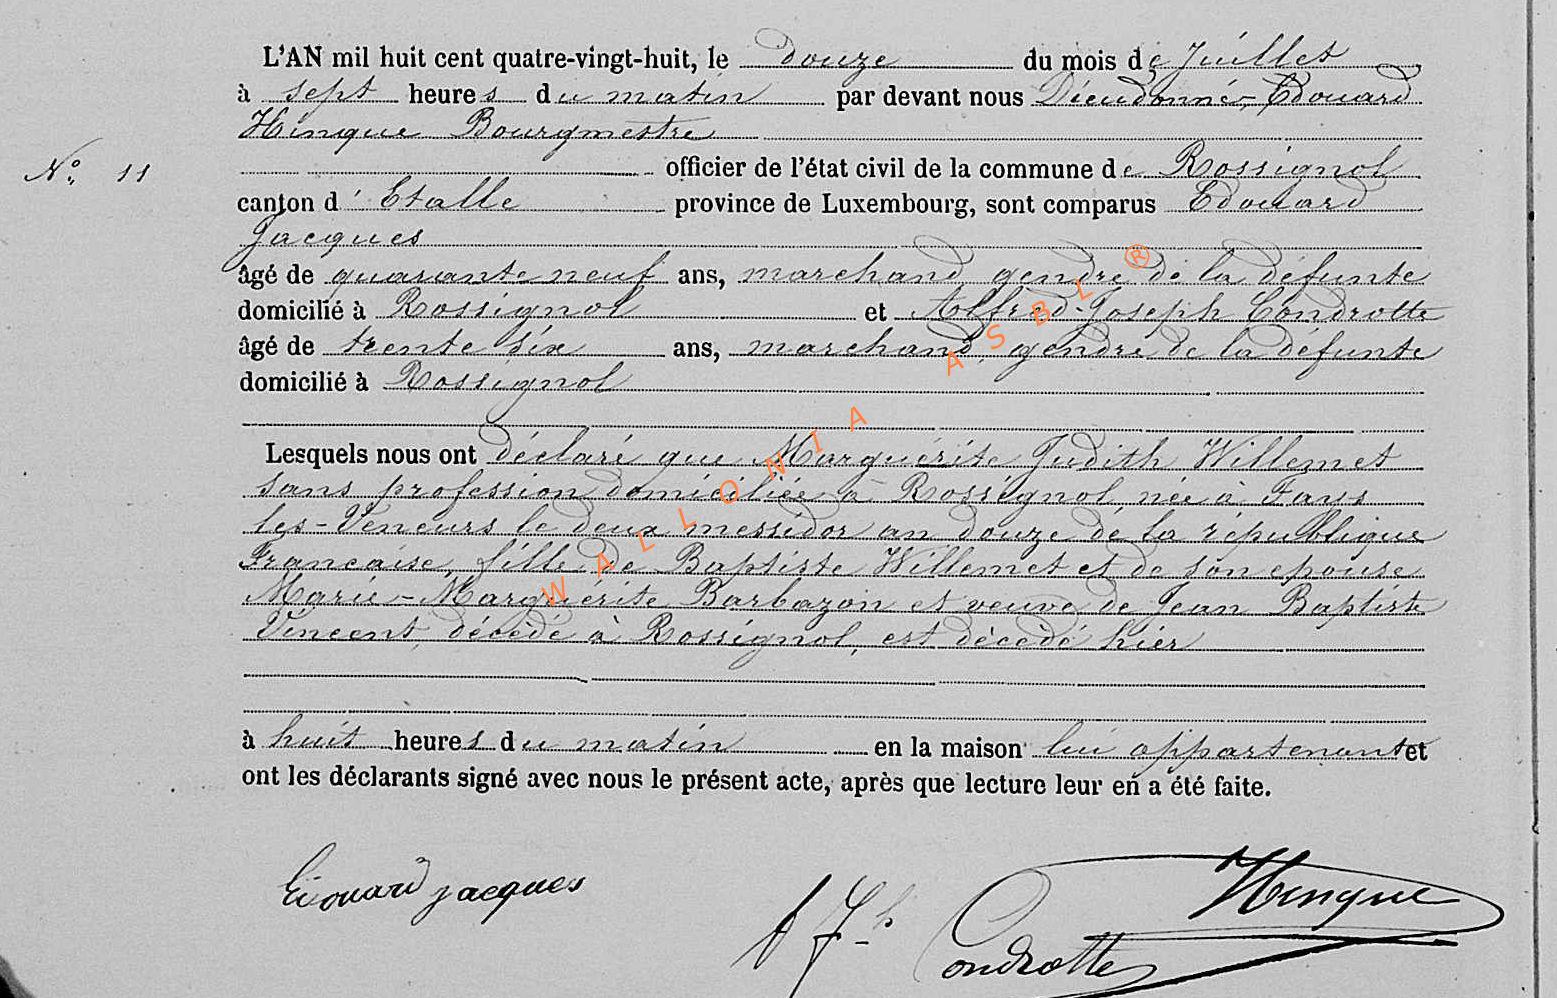 L'AN mil huit cent quatre-vingt-huit, le douze du mois de Juillet
à sept heures du matin par devant nous Dieudonné-Edouard
Hinque Bourgmestre
N° 11
officier de l'état civil de la commune de Rossignol
canton d'Etalle province de Luxembourg, sont comparus Edouard
Jacques
âgé de quarante neuf ans, marchand gendre de la défunte
domicilié à Rossignol et Alfred-Joseph Condrotte
âgé de trente six ans, marchand, gendre de la defunte
domicilié à Rossignol
Lesquels nous ont déclaré que Marguérite Judith Willemet
sans profession domiciliée à Rossignol née à Fays
les-Veneurs le deux messidor an douze de la république
Francaise, fille de Baptiste Willemet et de son epouse
Marie-Marguérite Barbazon et veuve de Jean Baptiste
Vincent, décédé à Rossignol, est décédé hier
à huit heures du matin en la maison lui appartenant et
ont les déclarants signé avec nous le présent acte, après que lecture leur en a été faite.
Edouard Jacques
A Jh Condrotte
Hinque
WALLONIA ASBL ®